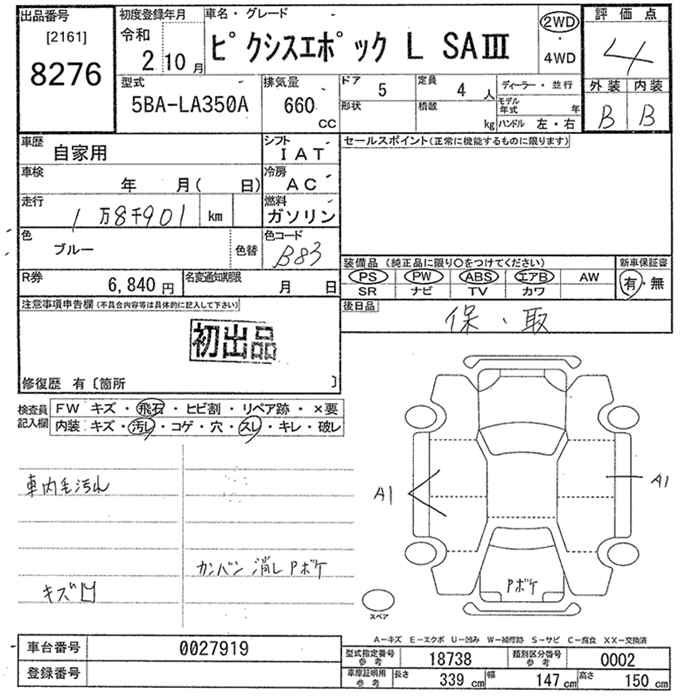 出品番号
[2161]
8276
初度登録年月
令和
2 10 月
車名・グレード
ピクシスエポック L SAⅢ
2WD
・
4WD
評価点
4
外装 内装
B B
型式
5BA-LA350A
排気量
660
CC
ドア
5
形状
定員
4 人
積載
kg
ディーラー・並行
モデル年式 年
ハンドル 左・右
車歴
自家用
シフト
IAT
車検
年 月( 日)
冷房
AC
走行
1万8千901 km
燃料
ガソリン
色
ブルー
色替
色コード
B83
R券
6,840 円
名変通知期限
月 日
セールスポイント(正常に機能するものに限ります)
装備品 (純正品に限り○をつけてください)
PS PW ABS エアB AW
SR ナビ TV カワ
新車保証書
有・無
後日品
保・取
注意事項申告欄 (不具合内容等は具体的に記入して下さい)
初出品
修復歴 有〔箇所 〕
検査員記入欄
FW キズ・飛石・ヒビ割・リペア跡・×要
内装 キズ・汚レ・コゲ・穴・スレ・キレ・破レ
車内毛汚れ
カンバン消しPボケ
キズ凹
A1
A1
Pボケ
スペア
A-キズ E-エクボ U-凹み W-補修跡 S-サビ C-腐食 XX-交換済
車台番号 0027919
登録番号
型式指定番号 参考 18738
類別区分番号 参考 0002
車庫証明用 参考 長さ 339 cm 幅 147 cm 高さ 150 cm